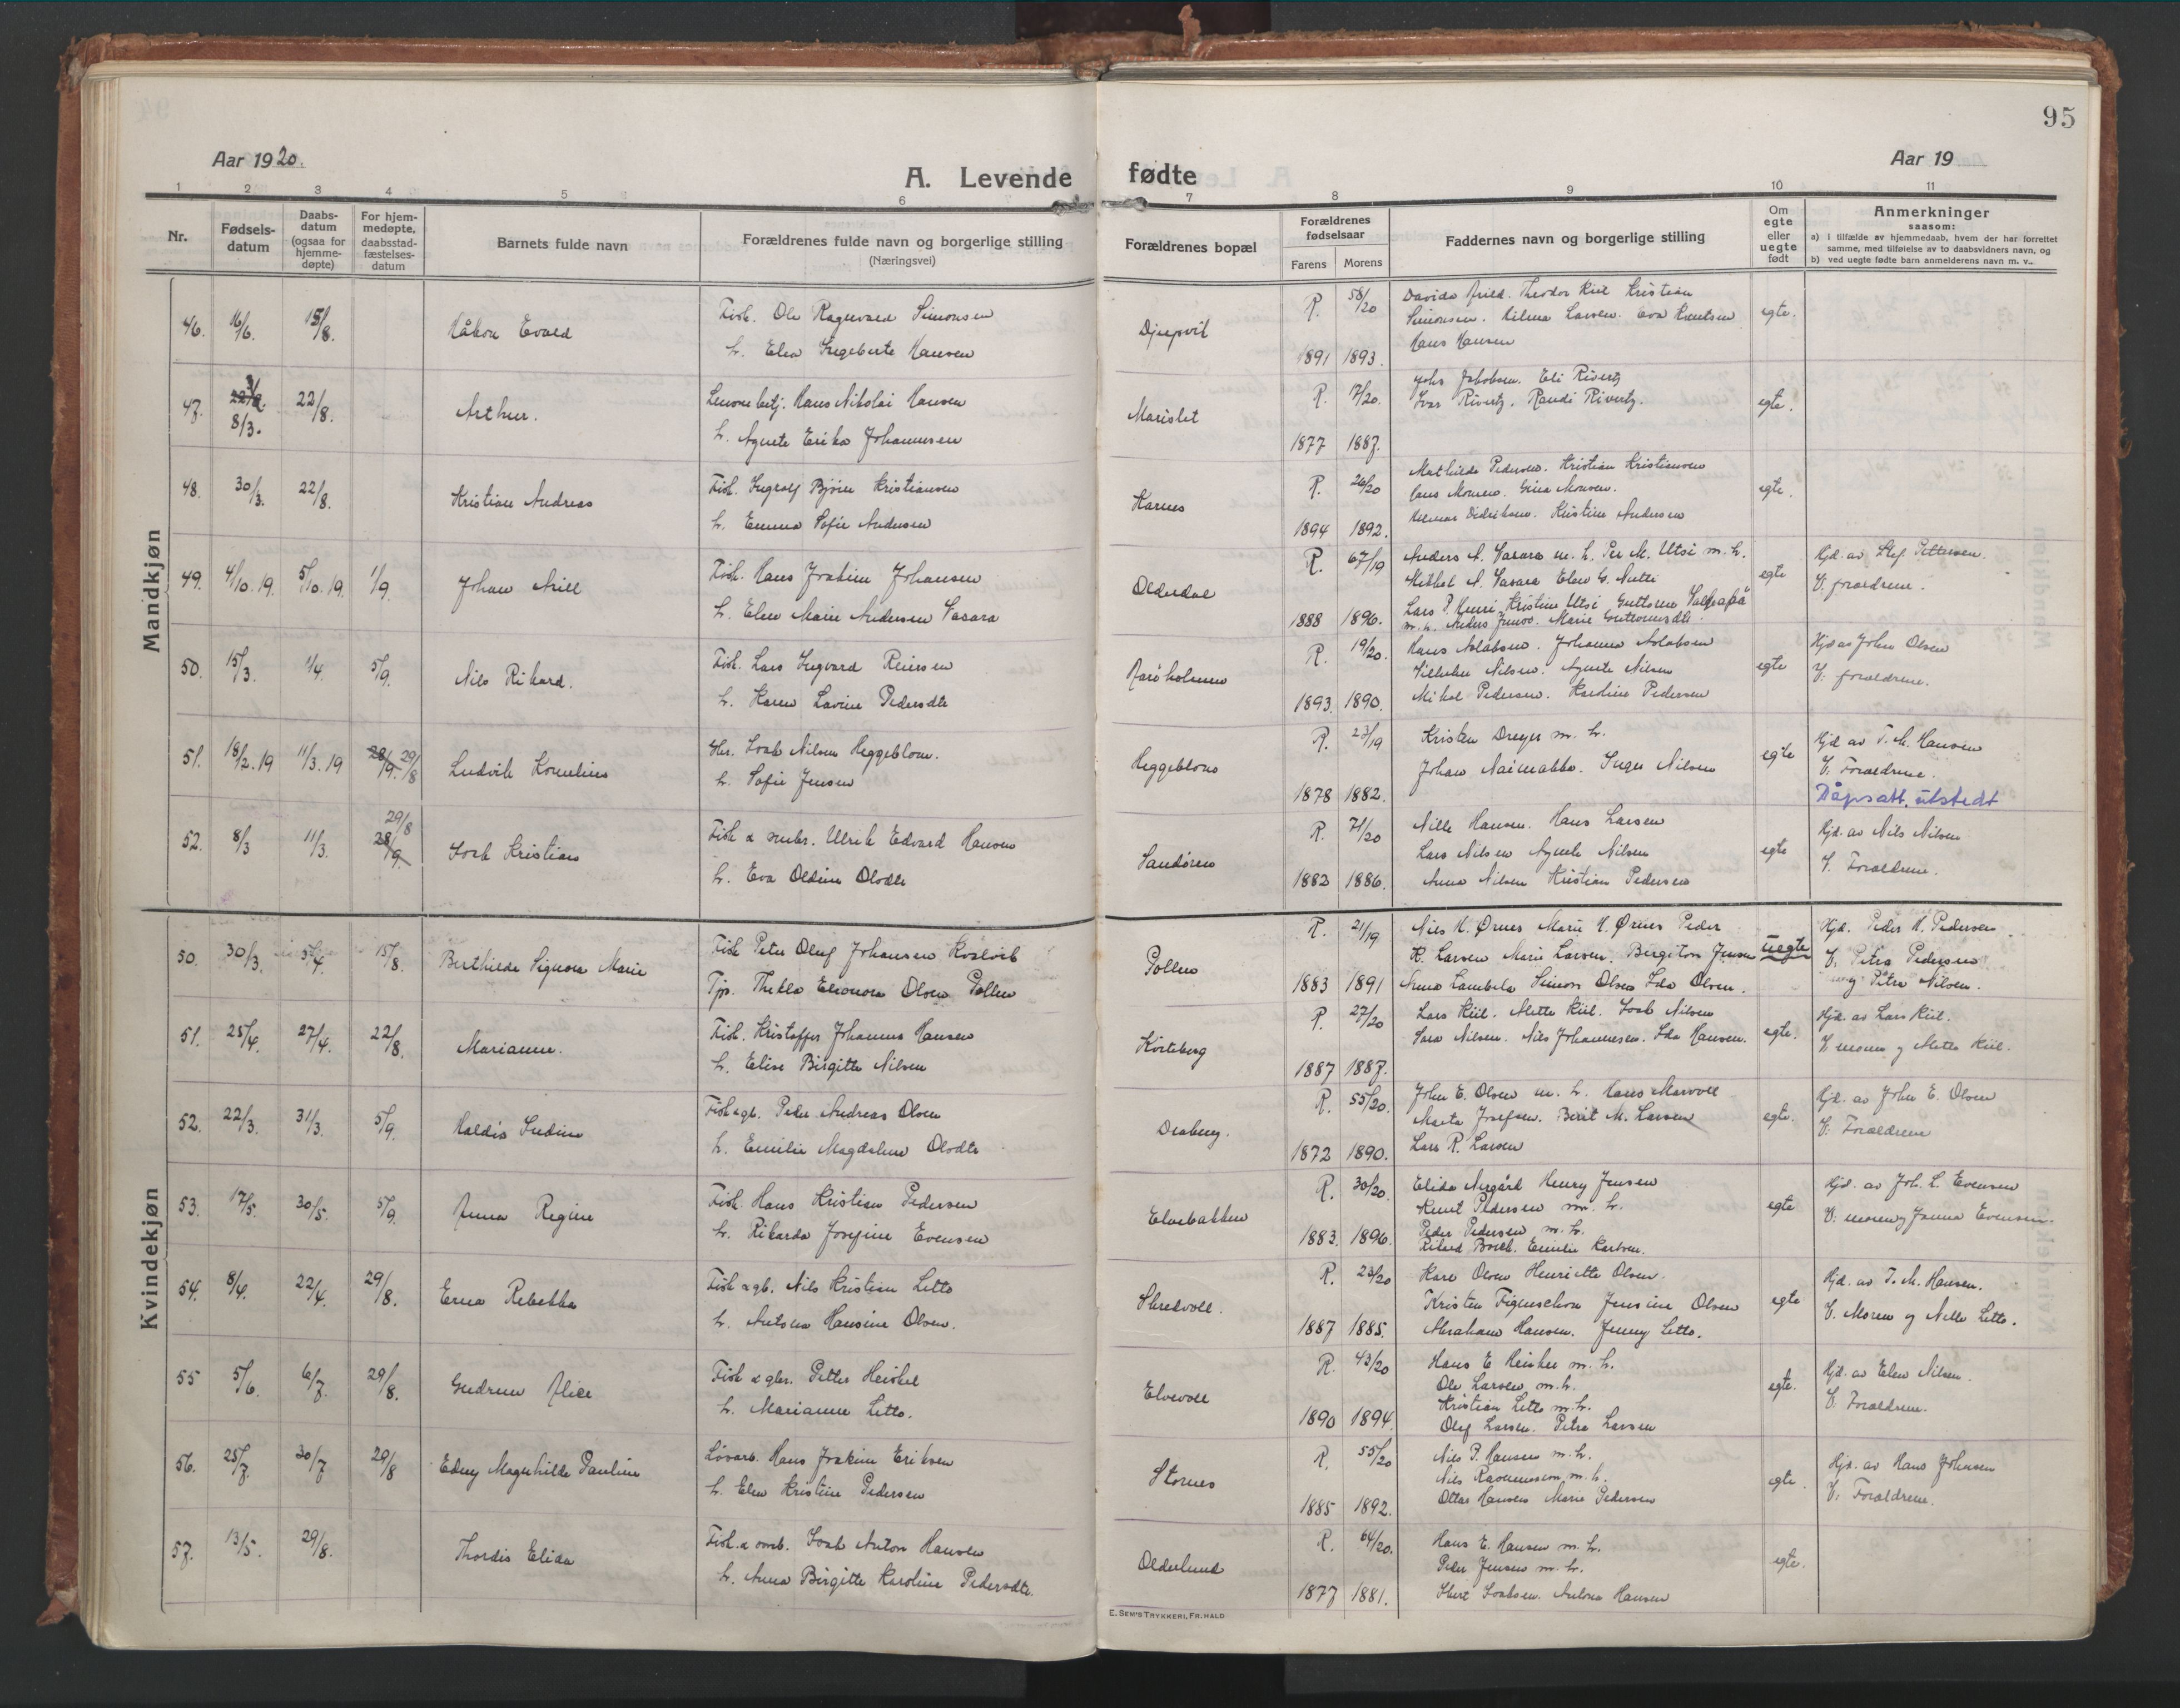 95
Aar 1920.
Aar 19
A. Levende fødte
1 2 3 4 5 6 7 8 9 10 11
Nr.
Fødselsdatum
Daabsdatum (ogsaa for hjemmedøpte)
For hjemmedøpte, daabsstadfæstelsesdatum
Barnets fulde navn
Forældrenes fulde navn og borgerlige stilling
(Næringsvei)
Forældrenes bopæl
Forældrenes fødselsaar
Farens Morens
Faddernes navn og borgerlige stilling
Om egte eller uegte født
Anmerkninger
saasom:
a) i tilfælde av hjemmedaab, hvem der har forrettet samme, med tilføielse av to daabsvidners navn, og
b) ved uegte fødte barn anmelderens navn m. v..
Mandkjøn
46. 16/6. 15/8. Håkon Evald
Fisk. Ole Ragnvald Simonsen
h. Elen Ingeberte Hansen
Djupvik
R. 58/20
1891 1893.
Simonsen. Hilma Larsen. Eva Knutsen
Hans Hansen
egte.
47. 8/3. 22/8. Arthur.
Hans Nikolai Hansen
h. Agnete Erika Johannesen
Marislet
R. 17/20.
1877 1887.
Johs Jakobsen. Eli Rivertz
Ivar Rivertz. Randi Rivertz.
egte.
48. 30/3. 22/8. Kristian Andreas
Fisk. Ingvald Bjørn Kristiansen
h. Emma Sofie Andersen
Karnes
R. 26/20
1894 1892.
Mathilde Pedersen. Kristian Kristiansen
Hilmar Didriksen. Kristine Andersen
egte.
49. 4/10.19. 5/10.19. 1/9. Johan Arill
Fisk. Hans Joakim Johansen
h. Elen Marie Andersen Vasara
Olderdal
R. 67/19
1888 1896.
Anders A. Vasara m. h. Per M. Utsi m. h.
Mikkel A. Vasara Elen G. Nutti
egte
Hjd. av Olaf Pettersen.
V. foraeldrene.
50. 15/3. 11/4. 5/9. Nils Rikard.
Fisk. Lars Ingvard Reiersen
h. Karen Lavine Pedersdtr
R. 19/20.
1893. 1890.
Hans Aslaksen. Johanna Aslaksen
Vilhelm Nilsen. Agnete Nilsen
Mikal Pedersen. Karoline Pedersen
egte
Hjd av Johan Olsen
V: foraeldrene.
51. 18/2.19 11/3.19 28/9. 29/8 Ludvik Kornelius
Isak Nilsen Heggeblom.
h. Sofie Jensen
R. 23/19
1878 1882.
Kristen Dreyer m. h.
Johan Naimakka. Inger Nilsen
egte
Hjd av T. M. Hansen
V. Foraeldrene.
Dåpsatt. utstedt
52. 8/3 11/3. 29/8 28/9. Isak Kristian
Ulrik Edvard Hansen
h. Eva Oldine Olsdtr
Sandøren
R. 71/20
1882 1886.
Nille Hansen. Hans Larsen
Lars Nilsen Agnete Nilsen
Anna Nilsen Kristian Pedersen
egte
Hjd. av Nils Nilsen
V. Foraeldrene.
Kvindekjøn
50. 30/3. 5/4. 15/8. Berthilde Signora Marie
Fisk Peter Oluf Johansen Kvalvik
Tjp. Thekla Eleonora Olsen Pollen
Pollen
R. 21/19
1883 1891
Nils H. Ørnes Marie H. Ørnes Peder
H. Larsen Marie Larsen. Bergiton Jensen
Anna Lambela Simon Olsen Ida Olsen.
uegte
Hjd. Peder H. Pedersen.
V: Petra Pedersen
og Petra Nilsen.
51. 25/4. 27/4. 22/8. Marianne.
Fisk. Kristoffer Johannes Hansen
h. Elise Birgitte Nilsen
R. 27/20
1887 1887.
Lars Kiil. Mette Kiil. Isak Nilsen
Sara Nilsen. Nils Johannesen. Ida Hansen.
egte.
Hjd. av Lars Kiil.
V moren og Mette Kiil.
52. 22/3. 31/3. 5/9. Haldis Indine
Peder Andreas Olsen
h. Emilie Magdalene Olsdtr
Draberg.
R. 55/20.
1872 1890.
John E. Olsen m. h. Hans Marvoll
Marta Josefsen. Berit M. Larsen
Lars R. Larsen
egte.
Hjd. av John E. Olsen
V: Foraeldrene
53. 17/5. 30/5. 5/9. Anna Regine
Fisk. Hans Kristian Pedersen
h. Rikarda Josefine Evensen
Elvebakken
R. 30/20.
1883. 1896.
Elida Nergård Henry Jensen
Knut Pedersen m. h.
Peder Pedersen m. h.
Rikard Bork. Emilie Karlsen.
egte
Hjd. av Joh. L. Evensen
V: moren og Janna Evensen.
54. 8/4. 22/4. 29/8. Erna Rebekka
Nils Kristian Letto
h. Antona Hansine Olsen.
Skredvoll.
R. 23/20
1887 1885.
Kare Olsen Henriette Olsen.
Kristen Figenschou Jensine Olsen
Abraham Hansen. Jenny Letto.
egte
Hjd. av T. M. Hansen.
V. Moren og Nille Letto.
55 5/6. 6/7. 29/8. Gudrun Alice
Petter Heiskel
h. Marianne Letto.
Elvevoll
R. 43/20
1890 1894
Hans E Heiskel m. h.
Ole Larsen m. h.
Kristian Letto m. h.
Olaf Larsen. Petra Larsen
egte.
Hjd. av Elen Nilsen.
V. Foraeldrene.
56. 25/7. 30/7 29/8 Edny Magnhilde Pauline
Løsarb. Hans Joakim Eriksen
h. Elen Kristine Pedersen
Stornes
R. 55/20
1885 1892.
Nils P. Hansen m. h.
Nils Rasmussen m. h.
Ottar Hansen Marie Pedersen
egte.
Hjd. av Hans Johnsen
V: Foraeldrene.
57. 13/5. 29/8. Thordis Elida
Isak Anton Hansen
h. Anna Birgitte Karoline Pedersdtr.
Olderlund
R. 64/20.
1877 1881.
Hans E. Hansen m. h.
Peder Jensen m. h.
Isaksen. Antona Hansen
egte.
E. SEM'S TRYKKERI, FR. HALD